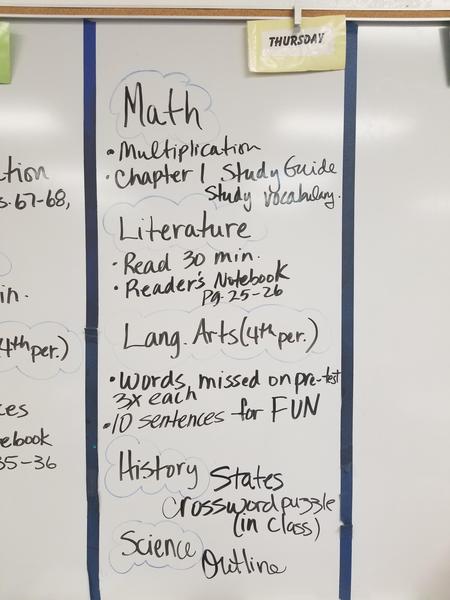 THURSDAY
Math
• Multiplication
• Chapter 1 Study Guide
Study Vocabulary.
Literature
• Read 30 min.
• Reader's Notebook
Pg. 25-26
Lang. Arts (4th per.)
• Words missed on pre-test
3x each
• 10 sentences for FUN
History States
Crossword puzzle
(in Class)
Science Outline
67-68,
in.
4th per.)
35-36